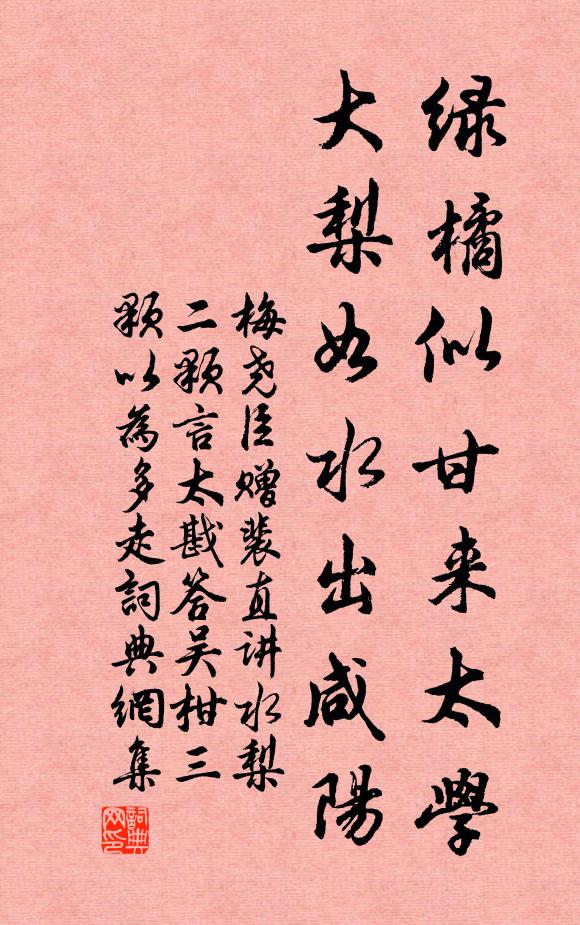 绿橘似甘来太學
大梨如水出咸陽
梅尧臣赠裴直讲水梨
二顆言太戡答吴柑三
顆以為多走詞典網集
詞典
网印